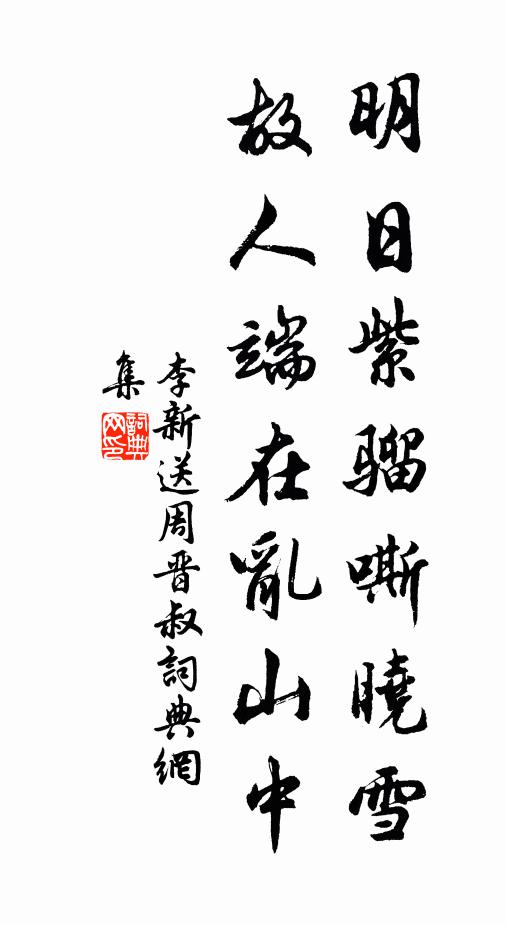 明日紫骝嘶曉雪
故人端在亂山中
李新送周晋叔詞典網
集
詞典网印